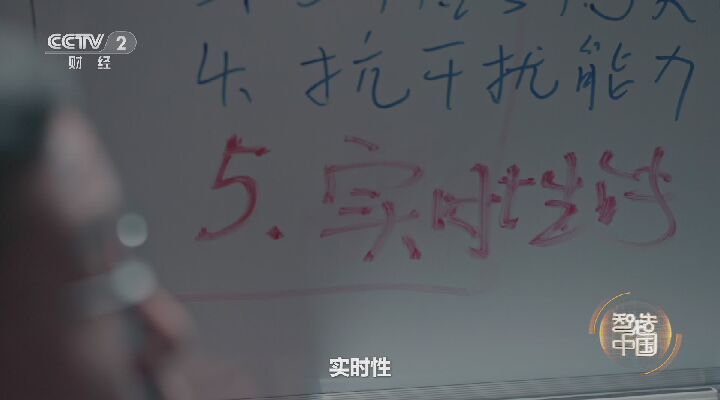 CCTV 2
财经
4、抗干扰能力
5.实时性
智造
中国
实时性